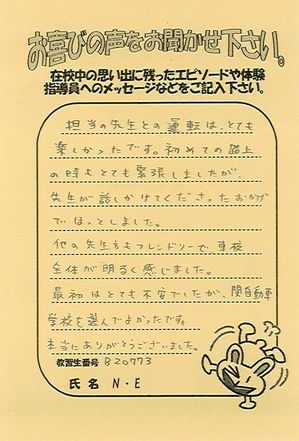 お喜びの声をお聞かせ下さい。
在校中の思い出に残ったエピソードや体験
指導員へのメッセージなどをご記入下さい。
担当の先生との運転は、とても
楽しかったです。初めての路上
の時もとても緊張しましたが、
先生が話しかけてくださったおかげ
でほっとしました。
他の先生方もフレンドリーで車校
全体が明るく感じました。
最初はとても不安でしたが、関自動車
学校を選んでよかったです。
本当にありがとうございました。
教習生番号 B20773
氏名 N・E